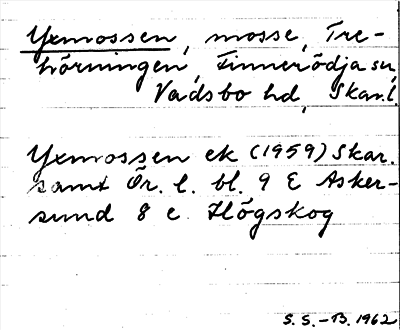 Yxmossen, mosse, Tre-
hörningen, Finnerödja sn,
Vadsbo hd, Skar.l.
Yxmossen ek (1959) Skar.
samt Ör. l. bl. 9 E Asker-
sund 8 c Högskog
S. S. - B. 1962